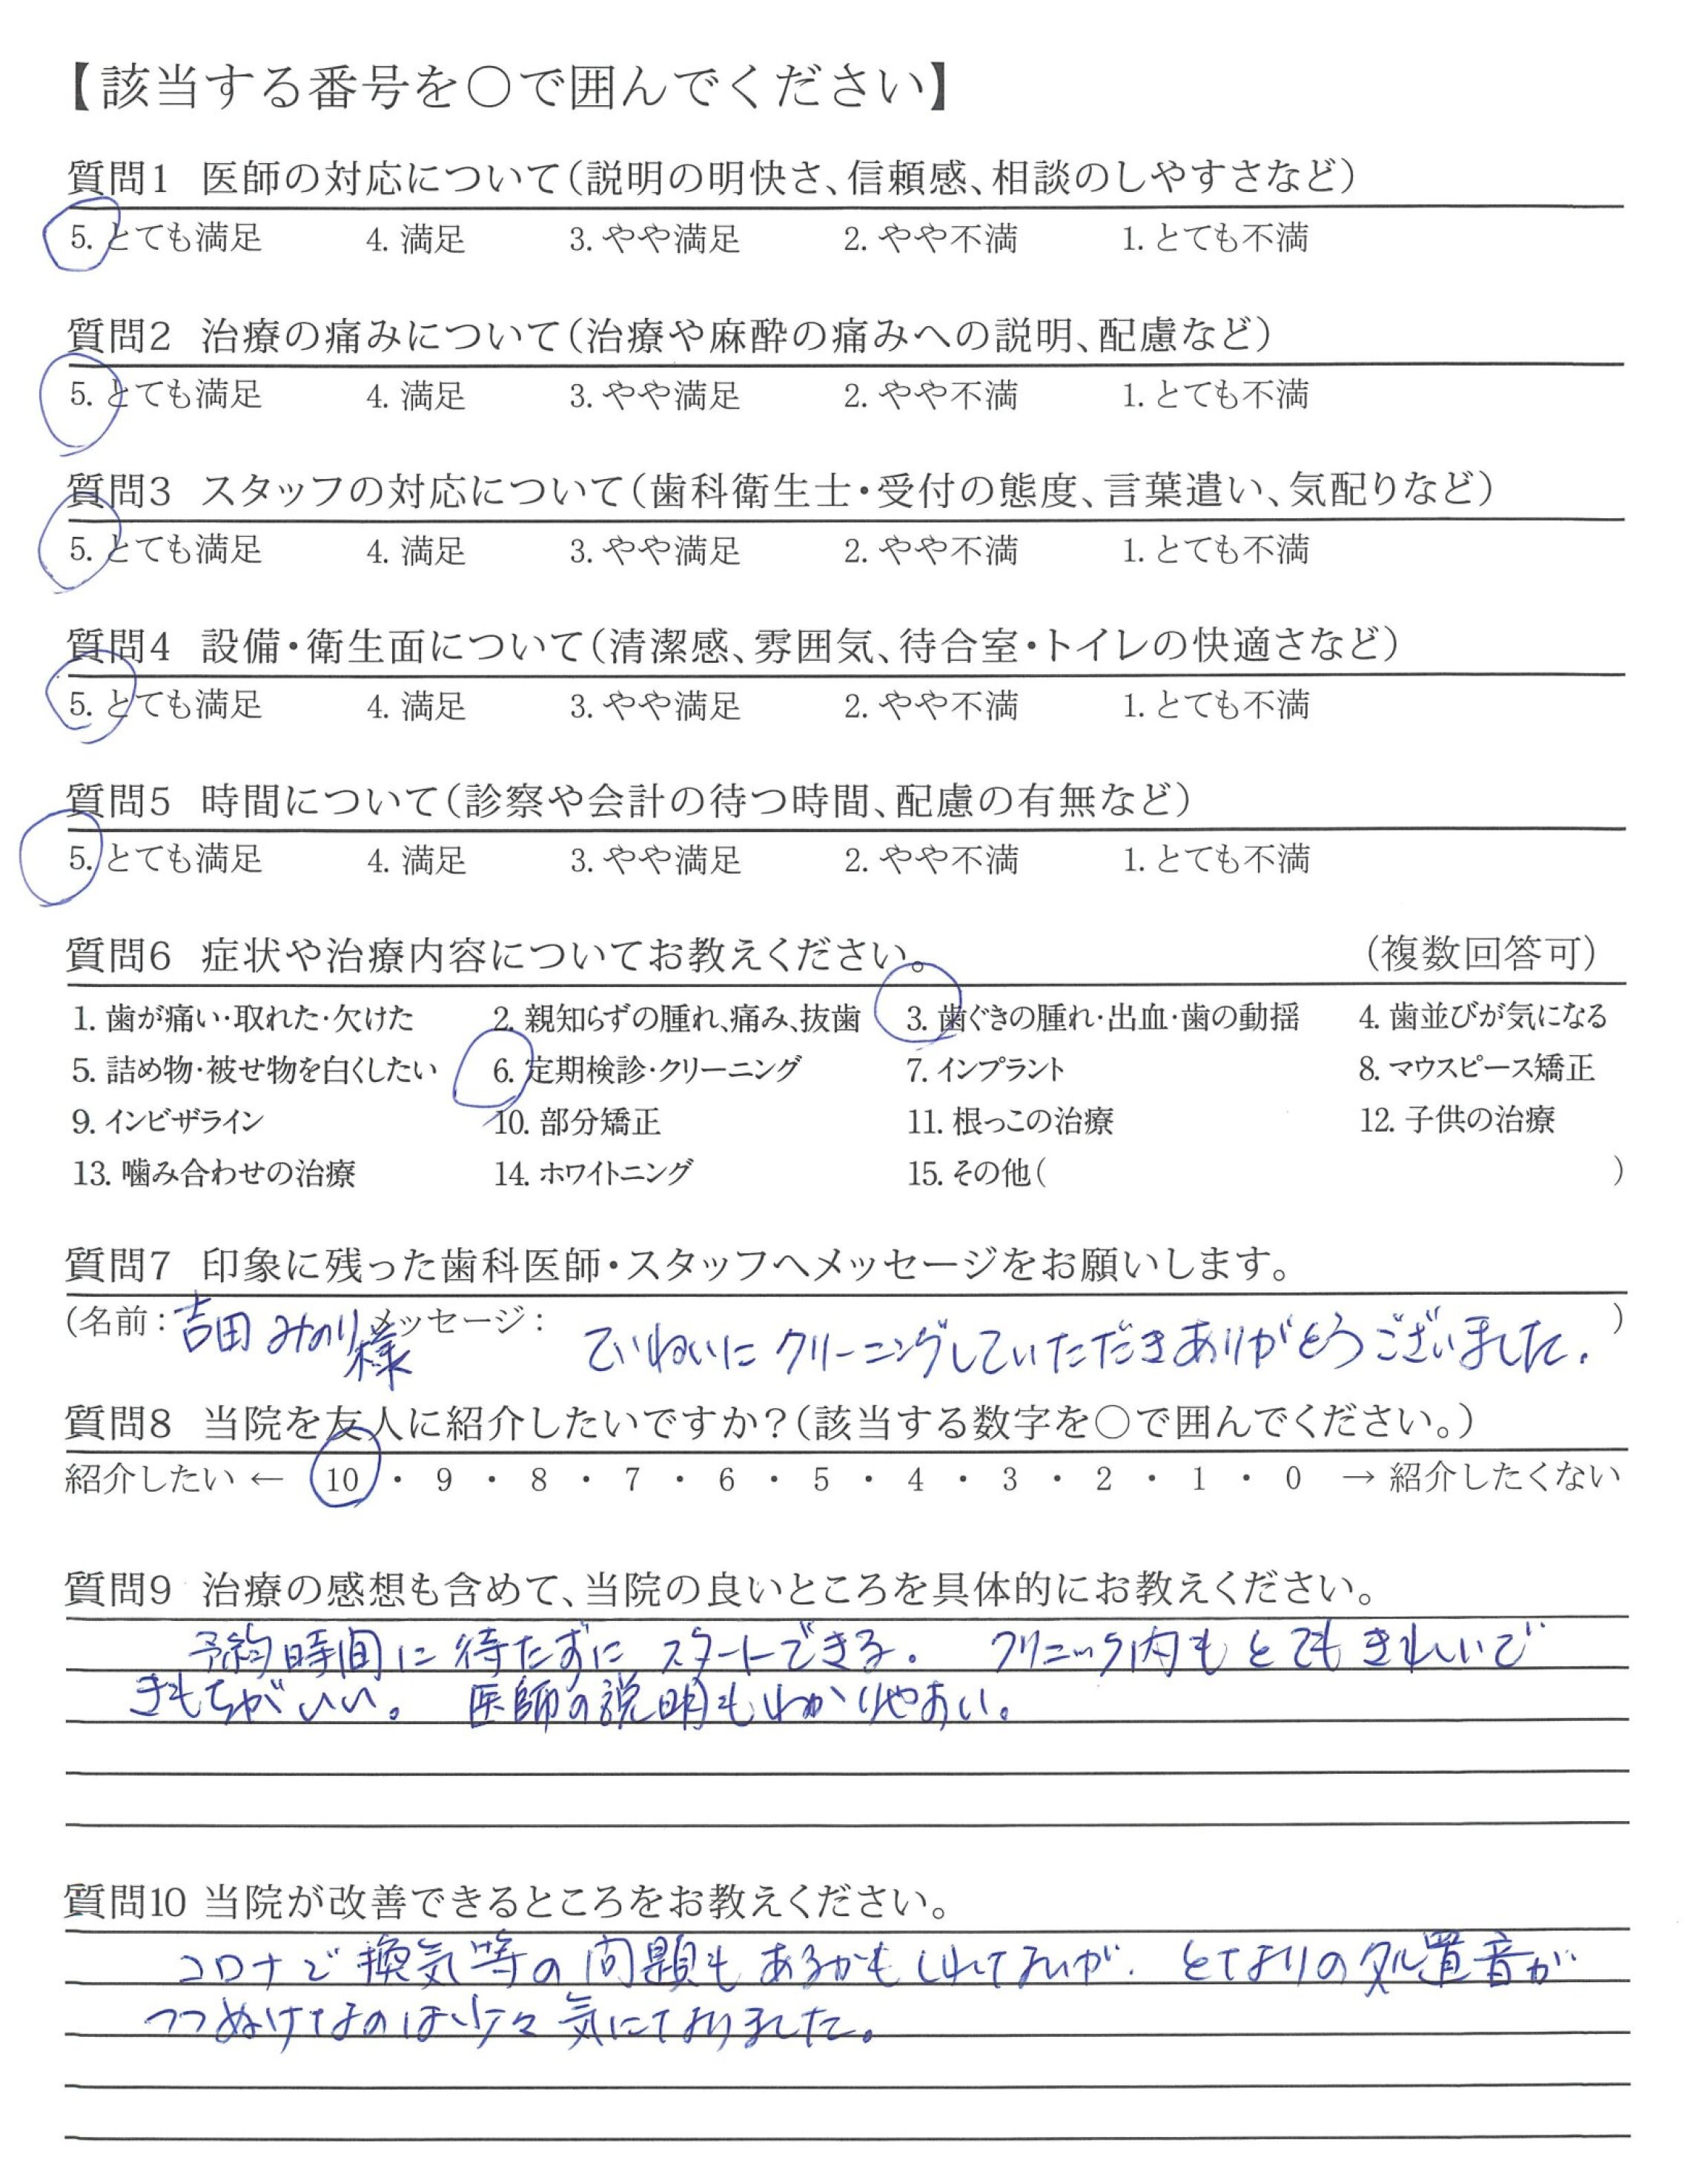 【該当する番号を○で囲んでください】
質問1 医師の対応について(説明の明快さ、信頼感、相談のしやすさなど)
5. とても満足 4. 満足 3. やや満足 2. やや不満 1. とても不満
質問2 治療の痛みについて(治療や麻酔の痛みへの説明、配慮など)
5. とても満足 4. 満足 3. やや満足 2. やや不満 1. とても不満
質問3 スタッフの対応について(歯科衛生士・受付の態度、言葉遣い、気配りなど)
5. とても満足 4. 満足 3. やや満足 2. やや不満 1. とても不満
質問4 設備・衛生面について(清潔感、雰囲気、待合室・トイレの快適さなど)
5. とても満足 4. 満足 3. やや満足 2. やや不満 1. とても不満
質問5 時間について(診察や会計の待つ時間、配慮の有無など)
5. とても満足 4. 満足 3. やや満足 2. やや不満 1. とても不満
質問6 症状や治療内容についてお教えください。 (複数回答可)
1. 歯が痛い・取れた・欠けた 2. 親知らずの腫れ、痛み、抜歯 3. 歯ぐきの腫れ・出血・歯の動揺 4. 歯並びが気になる
5. 詰め物・被せ物を白くしたい 6. 定期検診・クリーニング 7. インプラント 8. マウスピース矯正
9. インビザライン 10. 部分矯正 11. 根っこの治療 12. 子供の治療
13. 噛み合わせの治療 14. ホワイトニング 15. その他( )
質問7 印象に残った歯科医師・スタッフへメッセージをお願いします。
(名前: 吉田 みのり様 メッセージ: ていねいにクリーニングしていただきありがとうございました. )
質問8 当院を友人に紹介したいですか?(該当する数字を○で囲んでください。)
紹介したい ← 10 ・ 9 ・ 8 ・ 7 ・ 6 ・ 5 ・ 4 ・ 3 ・ 2 ・ 1 ・ 0 → 紹介したくない
質問9 治療の感想も含めて、当院の良いところを具体的にお教えください。
予約時間に待たずにスタートできる. クリニック内もとてもきれいで
きもちがいい。 医師の説明もわかりやすい。
質問10 当院が改善できるところをお教えください。
コロナで換気等の問題もあるかもしれないが. となりの処置音が
つつぬけなのは少々気になりました。